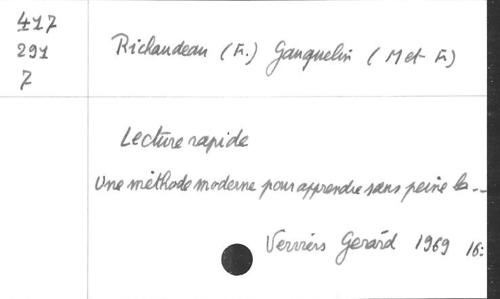 417
291
7
Richaudeau (F.) Gauquelin (M et F)
Lecture rapide
Une méthode moderne pour apprendre sans peine la...
Verviers Gerard 1969 16: